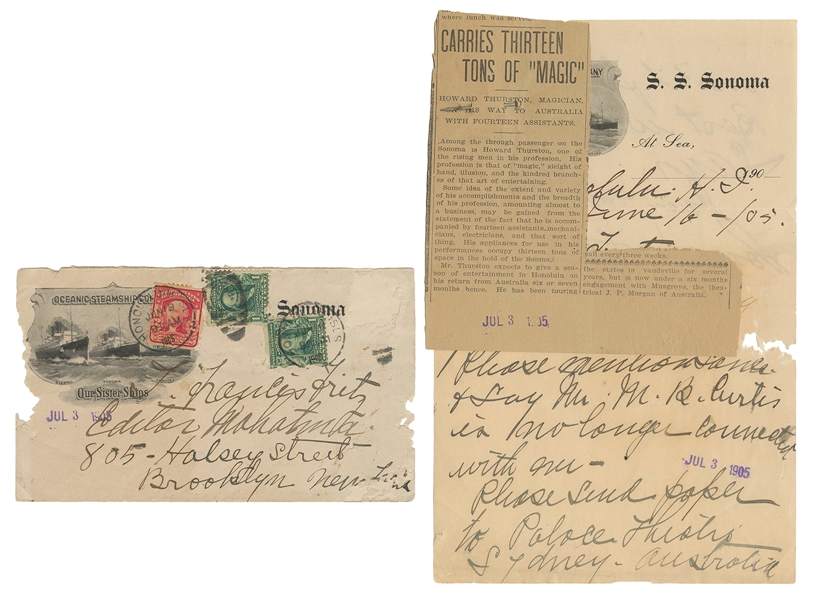 OCEANIC STEAMSHIP CO
Sonoma
Our Sister Ships
JUL 3 1905
T. Francis Fritz
Editor Mahatma
805 - Halsey Street
Brooklyn New
where lunch was served
CARRIES THIRTEEN
TONS OF "MAGIC"
HOWARD THURSTON, MAGICIAN,
HIS WAY TO AUSTRALIA
WITH FOURTEEN ASSISTANTS.
Among the through passenger on the
Sonoma is Howard Thurston, one of
the rising men in his profession. His
profession is that of "magic," sleight of
hand, illusion, and the kindred branch-
es of that art of entertaining.
Some idea of the extent and variety
of his accomplishments and the breadth
of his profession, amounting almost to
a business, may be gained from the
statement of the fact that he is accom-
panied by fourteen assistants, mechani-
cians, electricians, and that sort of
thing. His appliances for use in his
performances occupy thirteen tons of
space in the hold of the Sonma.
Mr. Thurston expects to give a sea-
son of entertainment in Honolulu on
his return from Australia six or seven
months hence. He has been touring
every three weeks.
the states in vaudeville for several
years, but is now under a six months
engagement with Musgrove, the thea-
trical J. P. Morgan of Australia.
JUL 3 1905
NY
S. S. Sonoma
At Sea,
190
lulu. H. I.
June 16 - 105.
Please mention same
& say Mr. M. R. Curtis
is no longer connected
with me -
Please send paper
to Palace Theatre
Sydney - Australia
JUL 3 1905